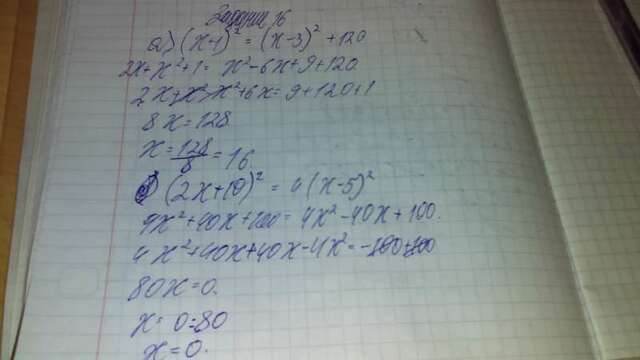 Задание 16
а) (x+1)² = (x-3)² + 120
2x+x²+1= x²-6x+9+120
2x+x²-x²+6x=9+120+1
8x=128
x=128/8=16
б) (2x+10)² = 4(x-5)²
4x²+40x+100=4x²-40x+100.
4x²+40x+40x-4x²=-100+100
80x=0.
x=0:80
x=0.